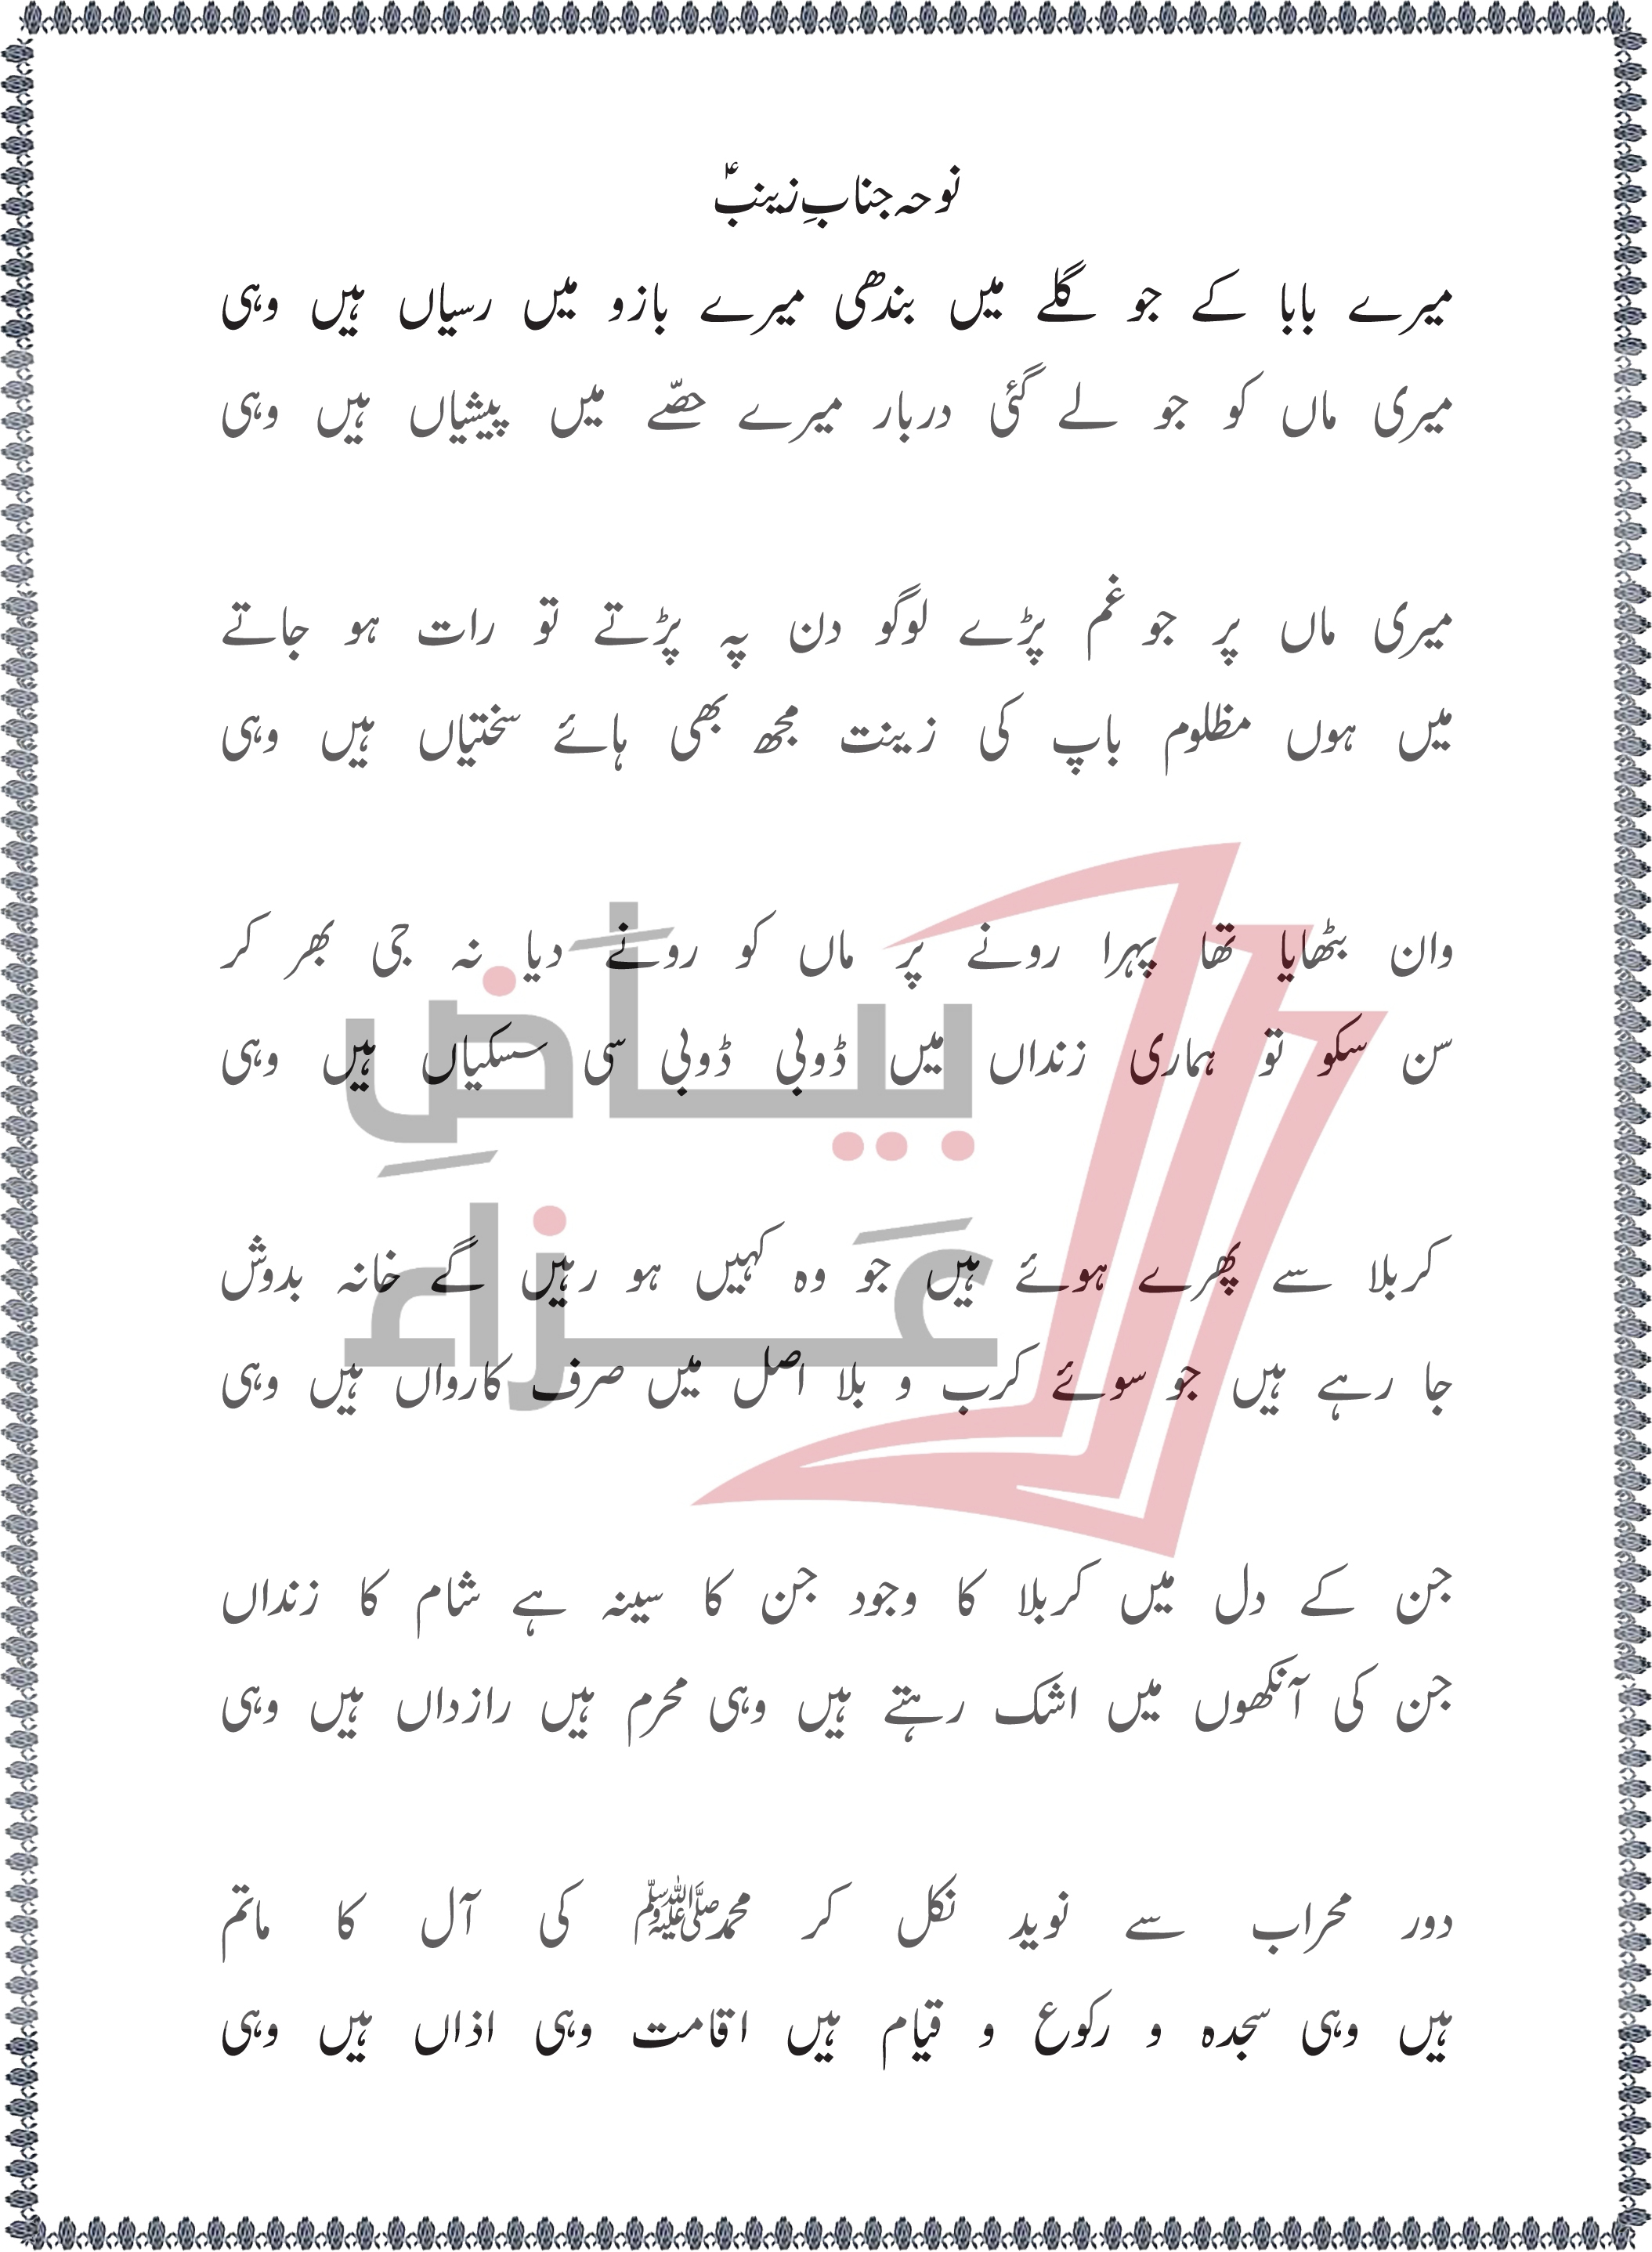 نوحہ جنابِ زینبؑ
میرے بابا کے جو گلے میں بندھی میرے بازو میں رسیاں ہیں وہی
میری ماں کو جو لے گئی دربار میرے حصّے میں پیشیاں ہیں وہی
میری ماں پر جو غم پڑے لوگو دن پہ پڑتے تو رات ہو جاتے
میں ہوں مظلوم باپ کی زینت مجھ بھی ہائے سختیاں ہیں وہی
وان بٹھایا تھا پہرا رونے پر ماں کو رونے دیا نہ جی بھر کر
سن سکو تو ہماری زنداں میں ڈوبی ڈوبی سی سسکیاں ہیں وہی
کربلا سے پھرے ہوئے ہیں جو وہ کہیں ہو رہیں گے خانہ بدوش
جا رہے ہیں جو سوئے کرب و بلا اصل میں صرف کارواں ہیں وہی
جن کے دل میں کربلا کا وجود جن کا سینہ ہے شام کا زنداں
جن کی آنکھوں میں اشک رہتے ہیں وہی محرم ہیں رازداں ہیں وہی
دور محراب سے نوید نکل کر محمدﷺ کی آل کا ماتم
ہیں وہی سجدہ و رکوع و قیام ہیں اقامت وہی اذاں ہیں وہی
بیاضِ
عَزاء